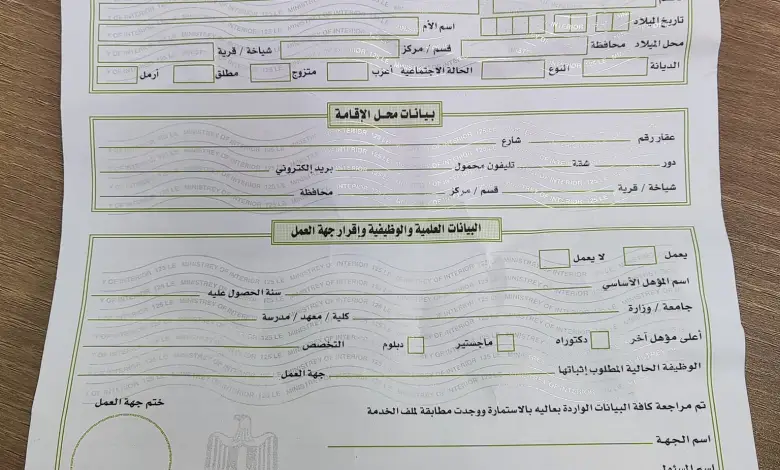 تاريخ الميلاد اسم الأم
محل الميلاد محافظة قسم / مركز شياخة / قرية
الديانة النوع الحالة الاجتماعية أعزب متزوج مطلق أرمل
بيانات محل الإقامة
عقار رقم شارع
دور شقة تليفون محمول بريد إلكتروني
شياخة / قرية قسم / مركز محافظة
البيانات العلمية والوظيفية وإقرار جهة العمل
يعمل لا يعمل
اسم المؤهل الأساسي سنة الحصول عليه
جامعة / وزارة كلية / معهد / مدرسة
أعلى مؤهل آخر دكتوراه ماجستير دبلوم التخصص
الوظيفة الحالية المطلوب إثباتها جهة العمل
تم مراجعة كافة البيانات الواردة بعاليه بالاستمارة ووجدت مطابقة لملف الخدمة
ختم جهة العمل
اسم الجهة